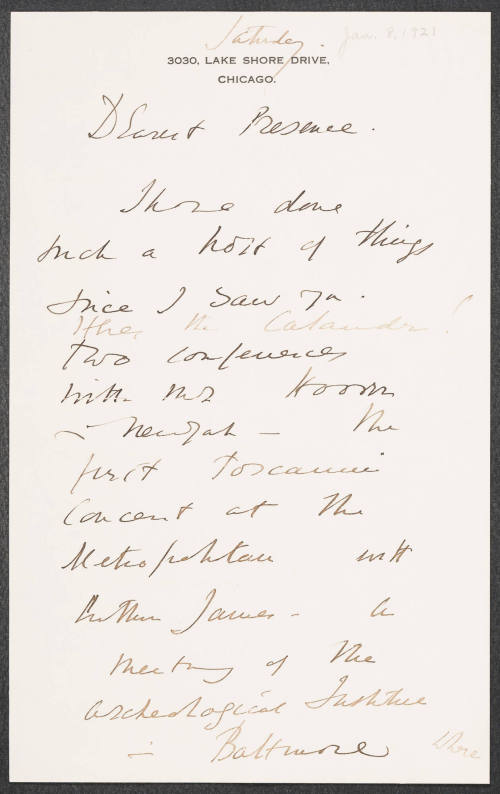 Saturday.
Jan. 8, 1921
3030, LAKE SHORE DRIVE,
CHICAGO.
Dearest Presence.
I have done
such a host of things
since I saw you.
the Calandar!
Two conferences
with Mr Hoover
in New York – The
first Toscanini
Concert at the
Metropolitan with
Arthur James – a
meeting of the
archeological Institute
in Baltimore where